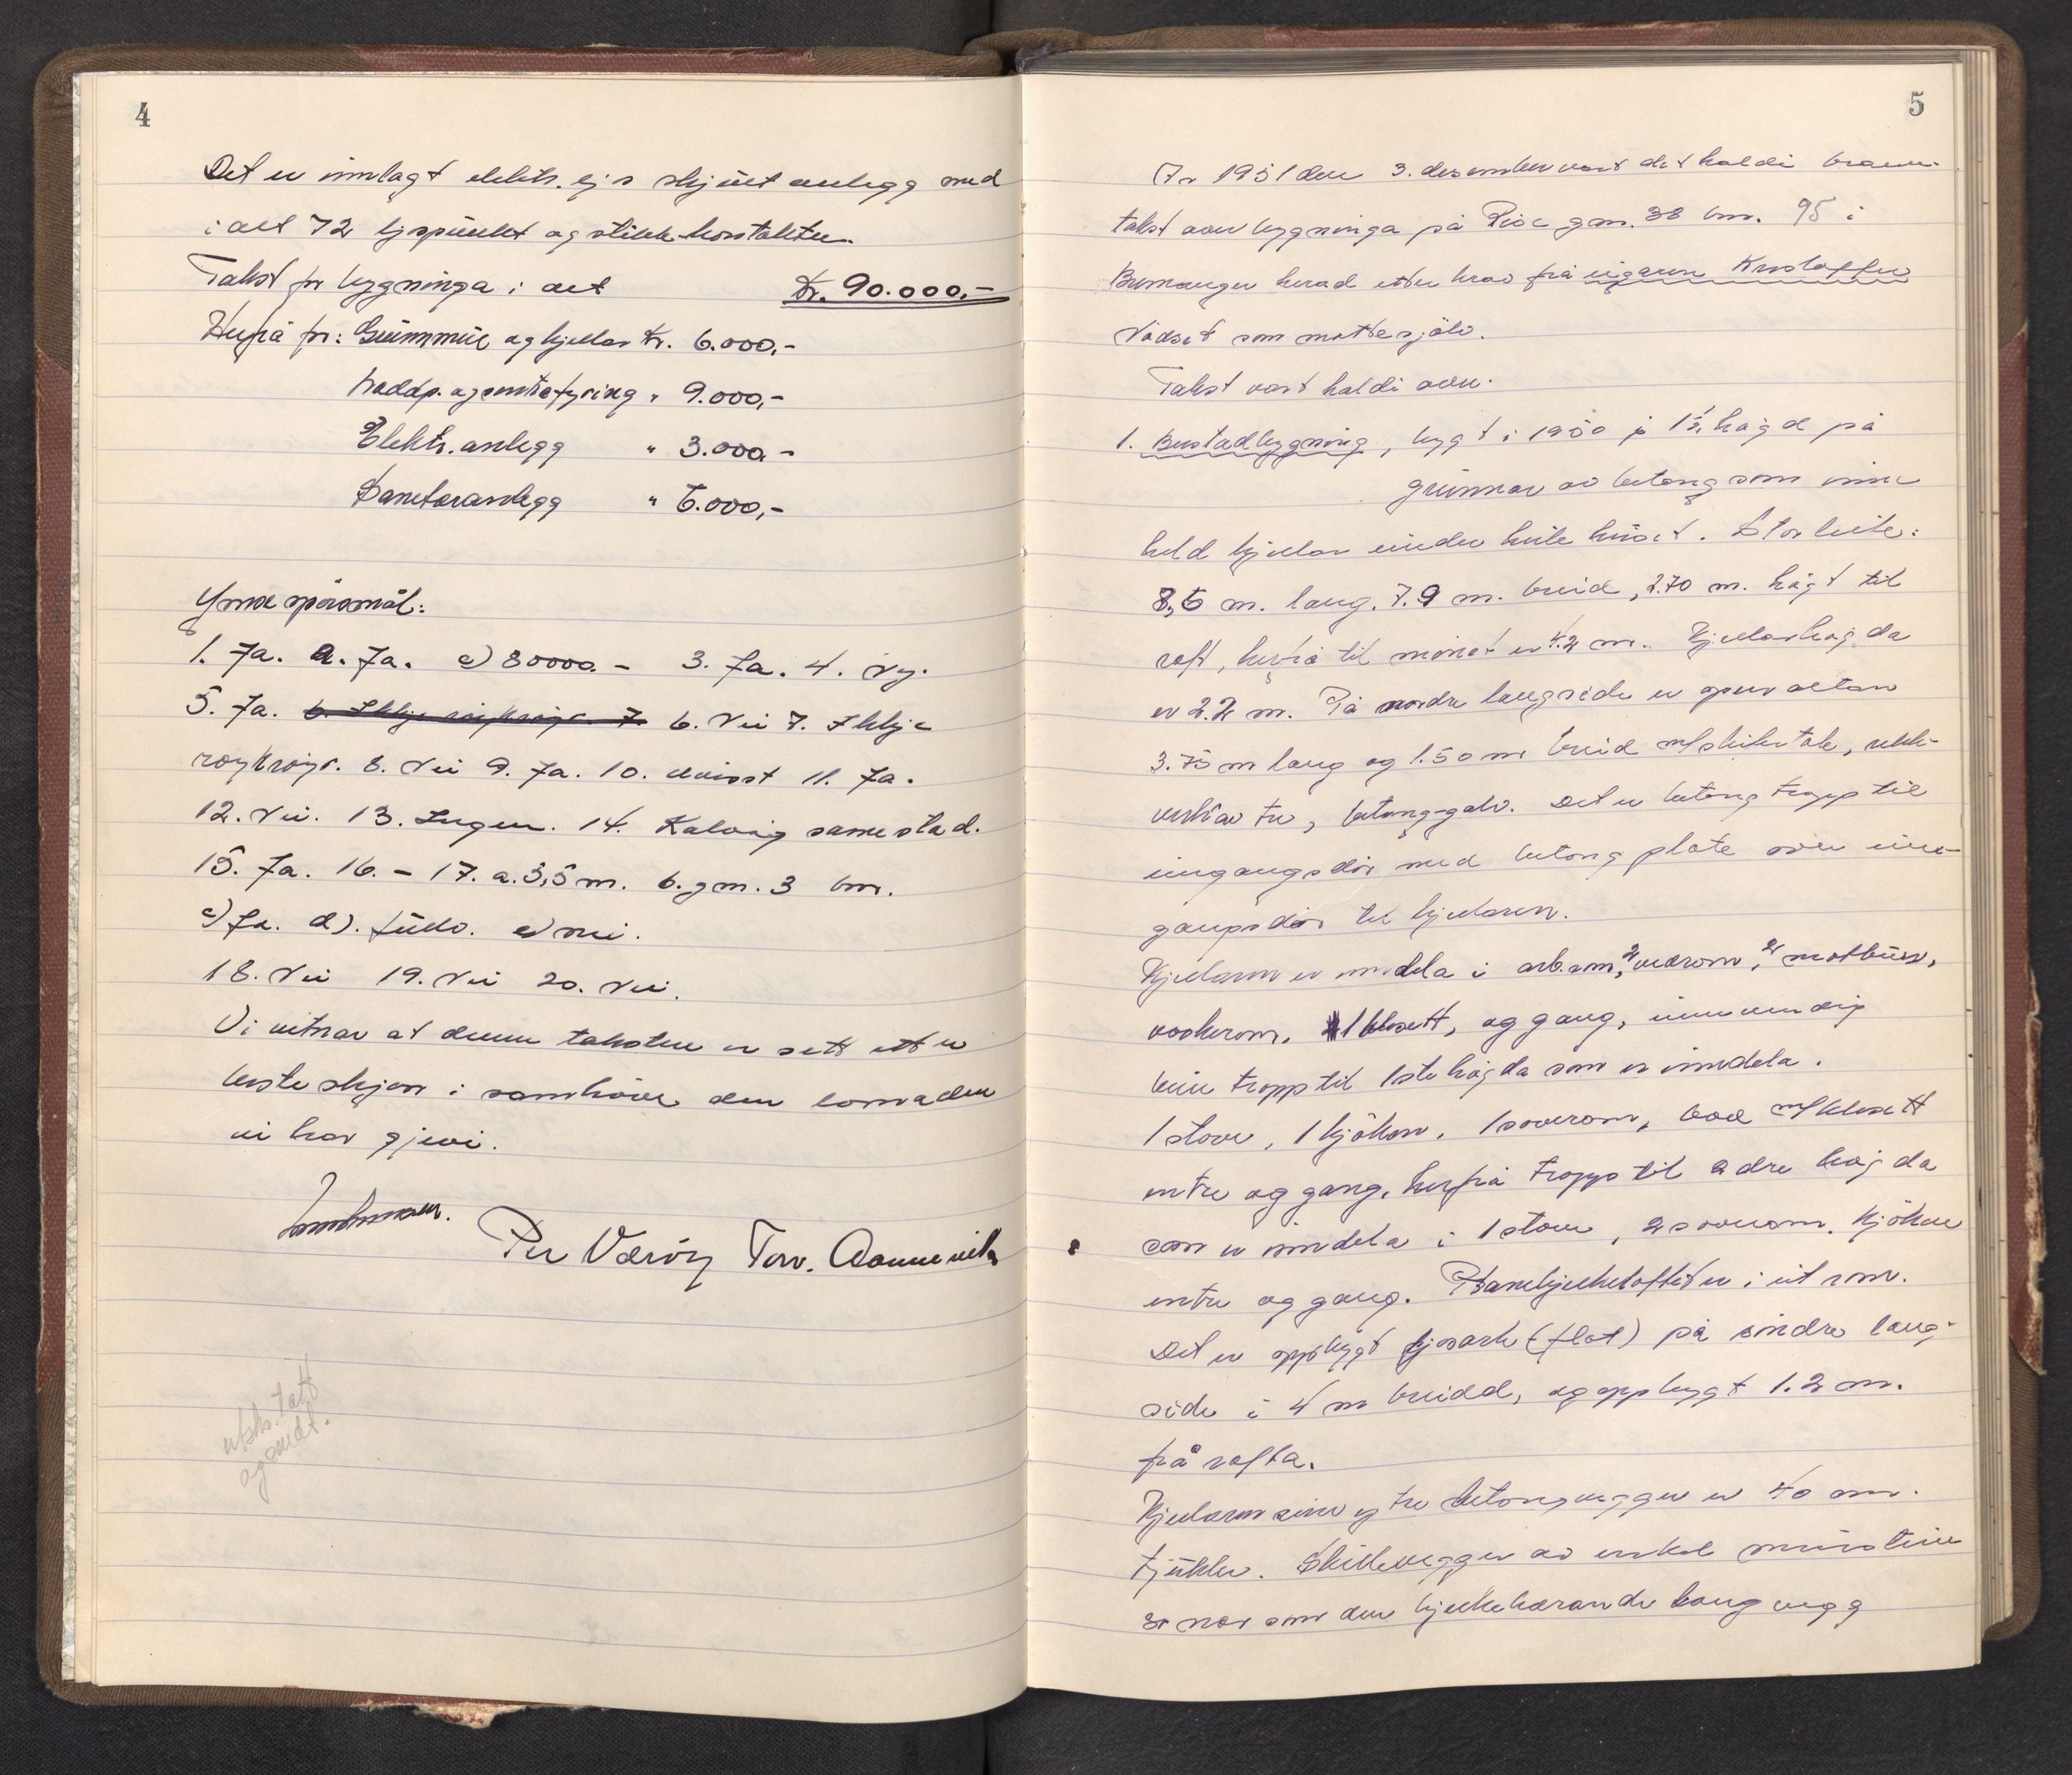 4
Det er innlagt elektr. ljs skjult anlegg med
i alt 72 ljspunkt og stikk-kontakter.
Takst pr bygninga i alt Kr. 90.000,-
Herfrå pr: Grunnmur og kjellar kr. 6.000,-
Vaddp. og sentralfyring " 9.000,-
Elektr. anlegg " 3.000 -
Sanitæranlegg " 6.000,-
Ymse spörsmål:
1. Ja. 2. Ja. c) 80000.- 3. Ja. 4. Ny.
5. Ja. 6. Ikkje röykröyr. 7. 6. Nei 7. Ikkje
röykröyr. 8. Nei 9. Ja. 10. 11. Ja.
12. Nei. 13. Ingen. 14. Kalvåg same stad.
15. Ja. 16. - 17. a. 3,5 m. b. gnr. 3 bnr.
c) Ja. d). fullv. e) nei.
18. Nei 19. Nei 20. Nei.
Vi vitnar at denne taksten er sett etter
beste skjön i samhöve den lovnaden
vi har gjevi.
Per Væröy Torv.
utskr. tatt
og sendt.
5
År 1951 den 3. desember vart det haldi brann-
takst over bygninga på gnr. 38 bnr. 95 i
Bremanger herad etter krav frå eigaren Kristoffer
Vådset som møtte sjölv.
Takst vart haldi over.
1. Bustadbygning, bygt i 1950 i 1½ högd på
grunnar av betong som inne
held kjellar under heile huset. Storleik:
8,5 m. lang. 7.9 m. breid, 2.70 m. högt til
raft, herfrå til mönet er 4.2 m. Kjellarhögda
er 2.2 m. På nordre langside er open altan
3.75 m lang og 1.50 m breid m/skifertak, rekk-
verk av tre, betong-golv. Det er betong trapp til
inngangsdör med betong plate over inn-
gangsdör til kjellaren.
Kjellaren er inndela i arb.rom, 2 vedrom, 2 matbuer,
vaskerom, 1 klosett, og gang, innvendig
trapp til 1ste högda som er inndela.
1 stove, 1 kjöken, 1 soverom, bad m/klosett
entre og gang, herfrå trapp til 2dre högda
som er inndela i 1 stove, 2 soverom. kjöken
entre og gang. Hanebjelkeloftet er i eit rom.
Det er oppbygt ljosark (flat) på söndre lang-
side i 4 m breidd, og oppbygt 1.2 m.
frå rafta.
Kjellaren sine ytre betongvegger er 40 cm.
tjukke. Skillevegger av enkel murstein
så nær som den bjelkebærande langvegg